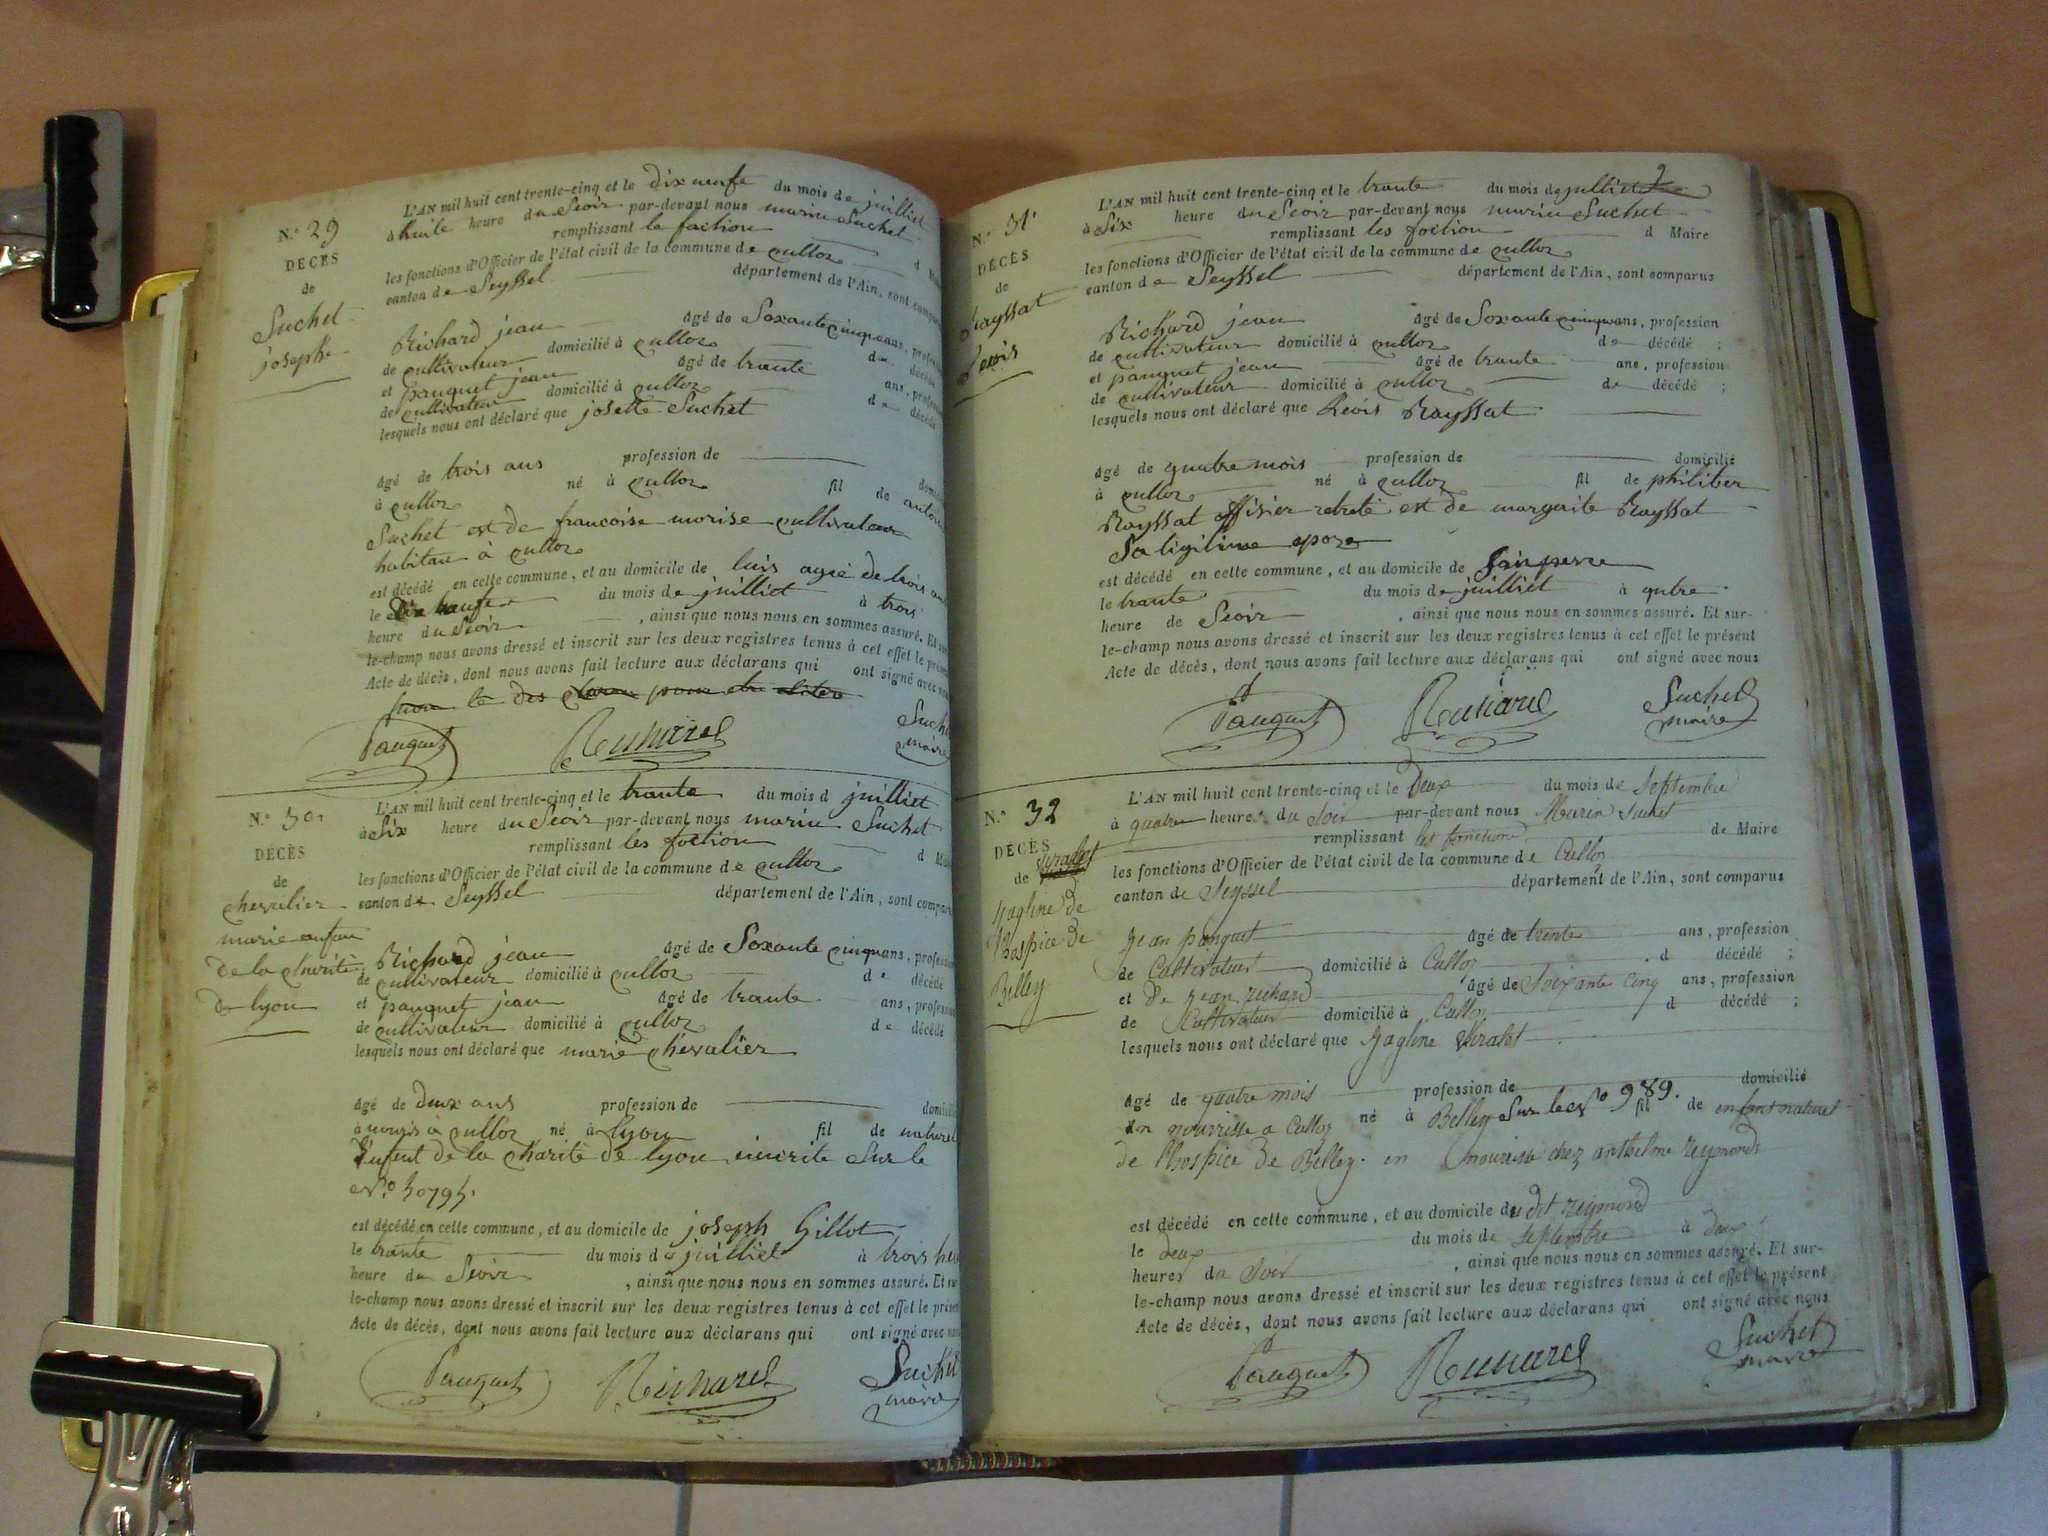 N.° 29
DÉCÈS
de
Suchet
joseph
L'AN mil huit cent trente-cinq et le dix neufe du mois de juilliet
à huite heure du Seoir par-devant nous marin Suchet
remplissant le foction d
les fonctions d'Officier de l'état civil de la commune de culloz
canton de Seyssel département de l'Ain, sont
Richard jean âgé de Soxante cinq ans,
de cultivateur domicilié à culloz de décédé
et panguet jean âgé de trante ans,
de cultivateur domicilié à culloz de décédé
lesquels nous ont déclaré que josette Suchet
âgé de trois ans profession de
à culloz né à culloz fil de
Suchet est de francoise morise cultivateur
habitan à culloz
est décédé en cette commune, et au domicile de luis agié de trois ans
le du mois de juilliet à trois
heure du Seoir, ainsi que nous nous en sommes assuré. Et
le-champ nous avons dressé et inscrit sur les deux registres tenus à cet effet le
Acte de décès, dont nous avons fait lecture aux déclarans qui ont signé avec
Panguet Richard
maire
N.° 30
DÉCÈS
de
chevalier
marie anfan
de la charité
de lyon
L'AN mil huit cent trente-cinq et le trante du mois d juilliet
à Six heure du Seoir par-devant nous marin Suchet
remplissant les foction d
les fonctions d'Officier de l'état civil de la commune de culloz
canton de Seyssel département de l'Ain, sont
Richard jean âgé de Soxante cinq ans,
de cultivateur domicilié à culloz de décédé
et panguet jean âgé de trante ans,
de cultivateur domicilié à culloz de décédé
lesquels nous ont déclaré que marie chevalier
âgé de deux ans profession de
à nouris a culloz né à lyon fil de naturel
enfent de la charité de lyon, inscrite Sur le
N.°
est décédé en cette commune, et au domicile de joseph Gillot
le trante du mois de juilliet à trois
heure du Seoir, ainsi que nous nous en sommes assuré. Et
le-champ nous avons dressé et inscrit sur les deux registres tenus à cet effet le
Acte de décès, dont nous avons fait lecture aux déclarans qui ont signé avec
Panguet Richard Suchet
maire
N.° 31
DÉCÈS
de
Rayssat
Leois
L'AN mil huit cent trente-cinq et le trante du mois de juilliet
à Six heure du Seoir par-devant nous marin Suchet
remplissant les foction d Maire
les fonctions d'Officier de l'état civil de la commune de culloz
canton de Seyssel département de l'Ain, sont comparus
Richard jean âgé de Soxante cinq ans, profession
de cultivateur domicilié à culloz de décédé ;
et panguet jean âgé de trante ans, profession
de cultivateur domicilié à culloz de décédé ;
lesquels nous ont déclaré que Leois Rayssat
âgé de quatre mois profession de domicilié
à culloz né à culloz fil de philiber
Rayssat offisier retreté est de margerite Rayssat
Sa ligitime epoze
est décédé en cette commune, et au domicile de
le trante du mois de juilliet à
heure de Seoir, ainsi que nous nous en sommes assuré. Et sur-
le-champ nous avons dressé et inscrit sur les deux registres tenus à cet effet le présent
Acte de décès, dont nous avons fait lecture aux déclarans qui ont signé avec nous
Panguet Richard Suchet
maire
N.° 32
DÉCÈS
de
hospice de
Belley
L'AN mil huit cent trente-cinq et le Deux du mois de Septembre
à quatre heures du Soir par-devant nous Marin Suchet
remplissant les fonctions de Maire
les fonctions d'Officier de l'état civil de la commune de Culloz
canton de Seyssel département de l'Ain, sont comparus
Jean Panguet âgé de trente ans, profession
de Cultivateur domicilié à Culloz d décédé ;
et de Jean Richard âgé de Soixante cinq ans, profession
de Cultivateur domicilié à Culloz d décédé ;
lesquels nous ont déclaré que
âgé de quatre mois profession de domicilié
en nourrisse a Culloz né à Belley Sur le N.° 989. fil de enfant naturel
de l'hospice de Belley. en nourisse chez anthelme reymond
est décédé en cette commune, et au domicile du dit reymond
le deux du mois de Septembre à deux
heures du Soir, ainsi que nous nous en sommes assuré. Et sur-
le-champ nous avons dressé et inscrit sur les deux registres tenus à cet effet le présent
Acte de décès, dont nous avons fait lecture aux déclarans qui ont signé avec nous
Panguet Richard Suchet
maire